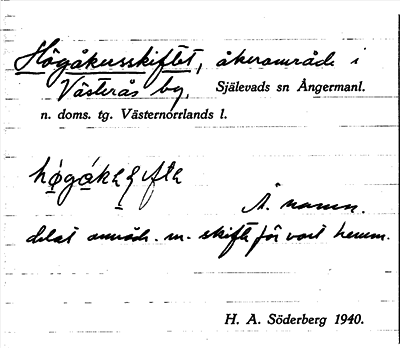 Högåkersskiftet, åkerområde i
Västerås by, Själevads sn Ångermanl.
n. doms. tg. Västernorrlands l.
Å. namn.
delat områd. m. skifte för vart hemm.
H. A. Söderberg 1940.